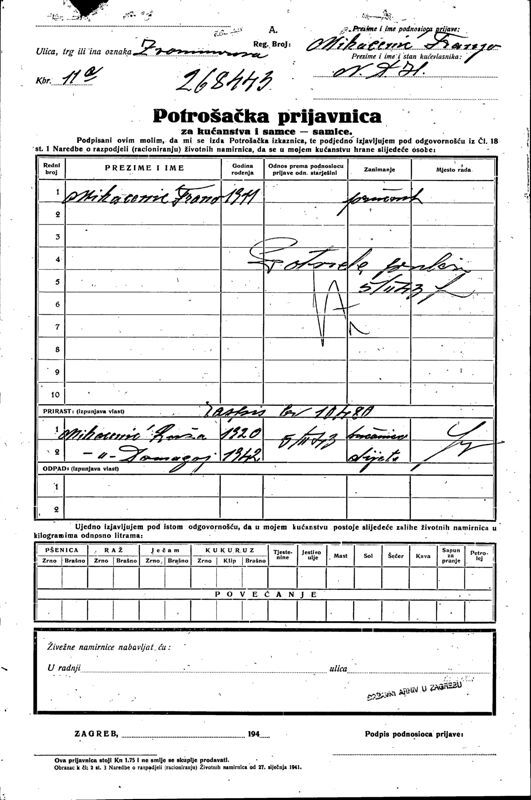 A.
Prezime i ime podnosioca prijave:
Ulica, trg ili ina oznaka
Reg. Broj:
Mihačević Franjo
Prezime i ime i stan kućevlasnika:
Kbr. 11a
268443
N. D. H.
Potrošačka prijavnica
za kućanstva i samce — samice.
Podpisani ovim molim, da mi se izda Potrošačka izkaznica, te podjedno izjavljujem pod odgovornošću iz Čl. 18
st. 1 Naredbe o razpodjeli (racioniranju) životnih namirnica, da se u mojem kućanstvu hrane slijedeće osobe:
Redni broj PREZIME I IME Godina rođenja Odnos prema podnosiocu prijave odn. starješini Zanimanje Mjesto rada
1 Mihačević Frano 1911
2
3
4
5 5/II 43
6
7
8
9
10
PRIRAST: (izpunjava vlast) br 10480
1 Mihačević Ruža 1920 5/II 43 kućanica
2 -"- Domagoj 1942 dijete
ODPAD: (izpunjava vlast)
1
2
Ujedno izjavljujem pod istom odgovornošću, da u mojem kućanstvu postoje slijedeće zalihe životnih namirnica u
kilogramima odnposno litrama:
PŠENICA RAŽ Ječam KUKURUZ Tjestenine Jestivo ulje Mast Sol Šećer Kava Sapun za pranje Petrolej
Zrno Brašno Zrno Brašno Zrno Brašno Zrno Klip Brašno
POVEĆANJE
Živežne namirnice nabavljat ću:
U radnji ulica
DRŽAVNI ARHIV U ZAGREBU
ZAGREB, 194 Podpis podnosioca prijave:
Ova prijavnica stoji Kn 1.75 i ne smije se skuplje prodavati.
Obrazac k čl. 2 st. 1 Naredbe o razpodjeli (racioniranju) Životnih namirnica od 27. siječnja 1941.